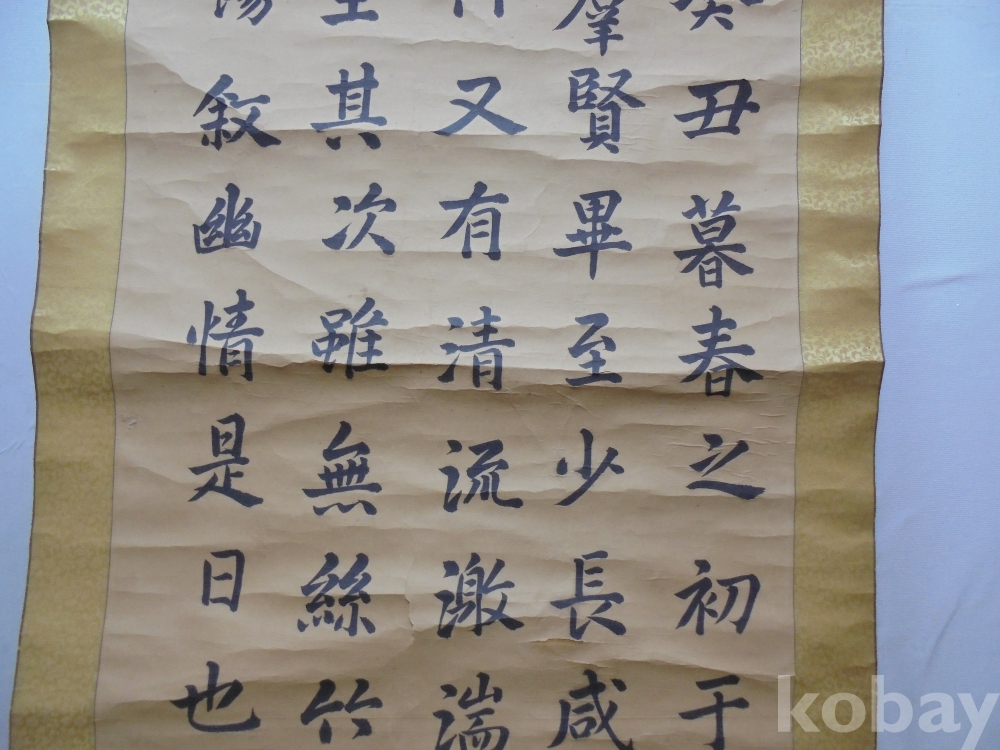 癸丑暮春之初于
羣賢畢至少長咸
又有清流激湍
坐其次雖無絲竹
觴敘幽情是日也
kobay